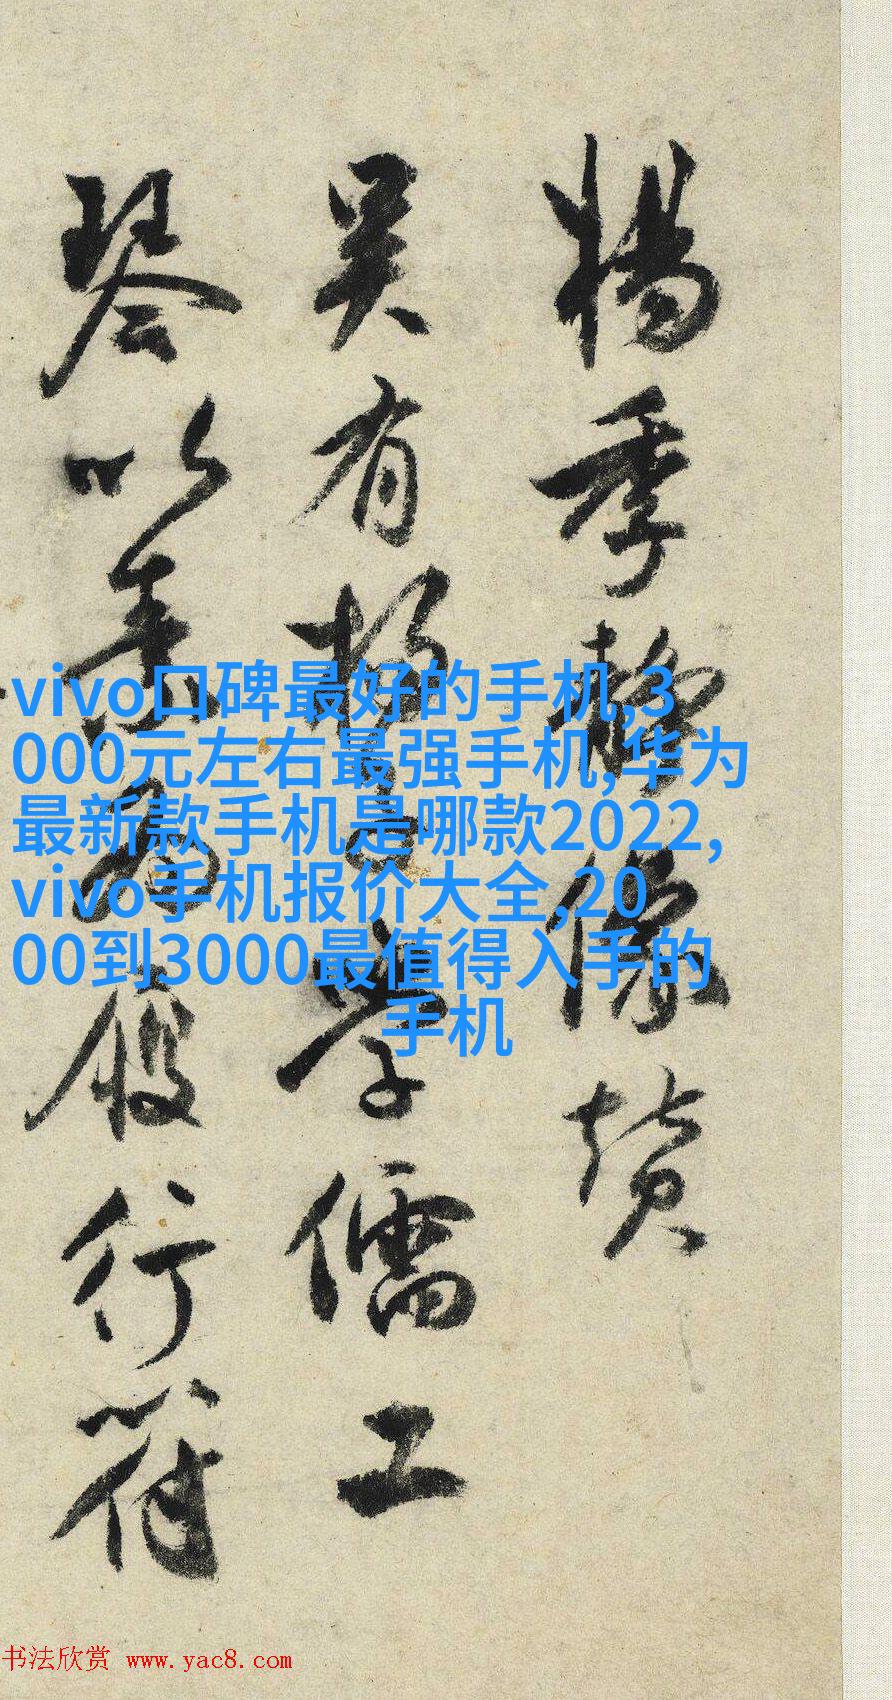 楊季靜像贊
吴有楊學儒工
琴以為履行符
vivo口碑最好的手机,3
000元左右最强手机,华为
最新款手机是哪款2022,
vivo手机报价大全,20
00到3000最值得入手的
手机
书法欣赏 www.yac8.com